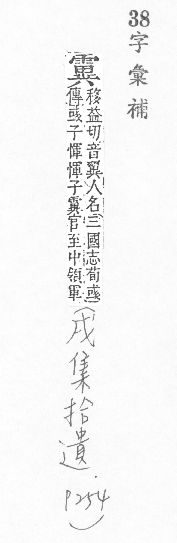 38字彙補
霬
移益切音翼人名三國志荀彧
傳彧子惲惲子霬官至中領軍
(戌集拾遺 P254)